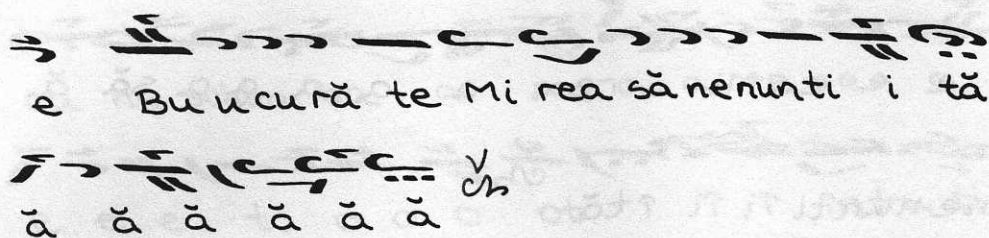 e Bu ucu ră te Mi rea să nenunti i tă
ă ă ă ă ă ă